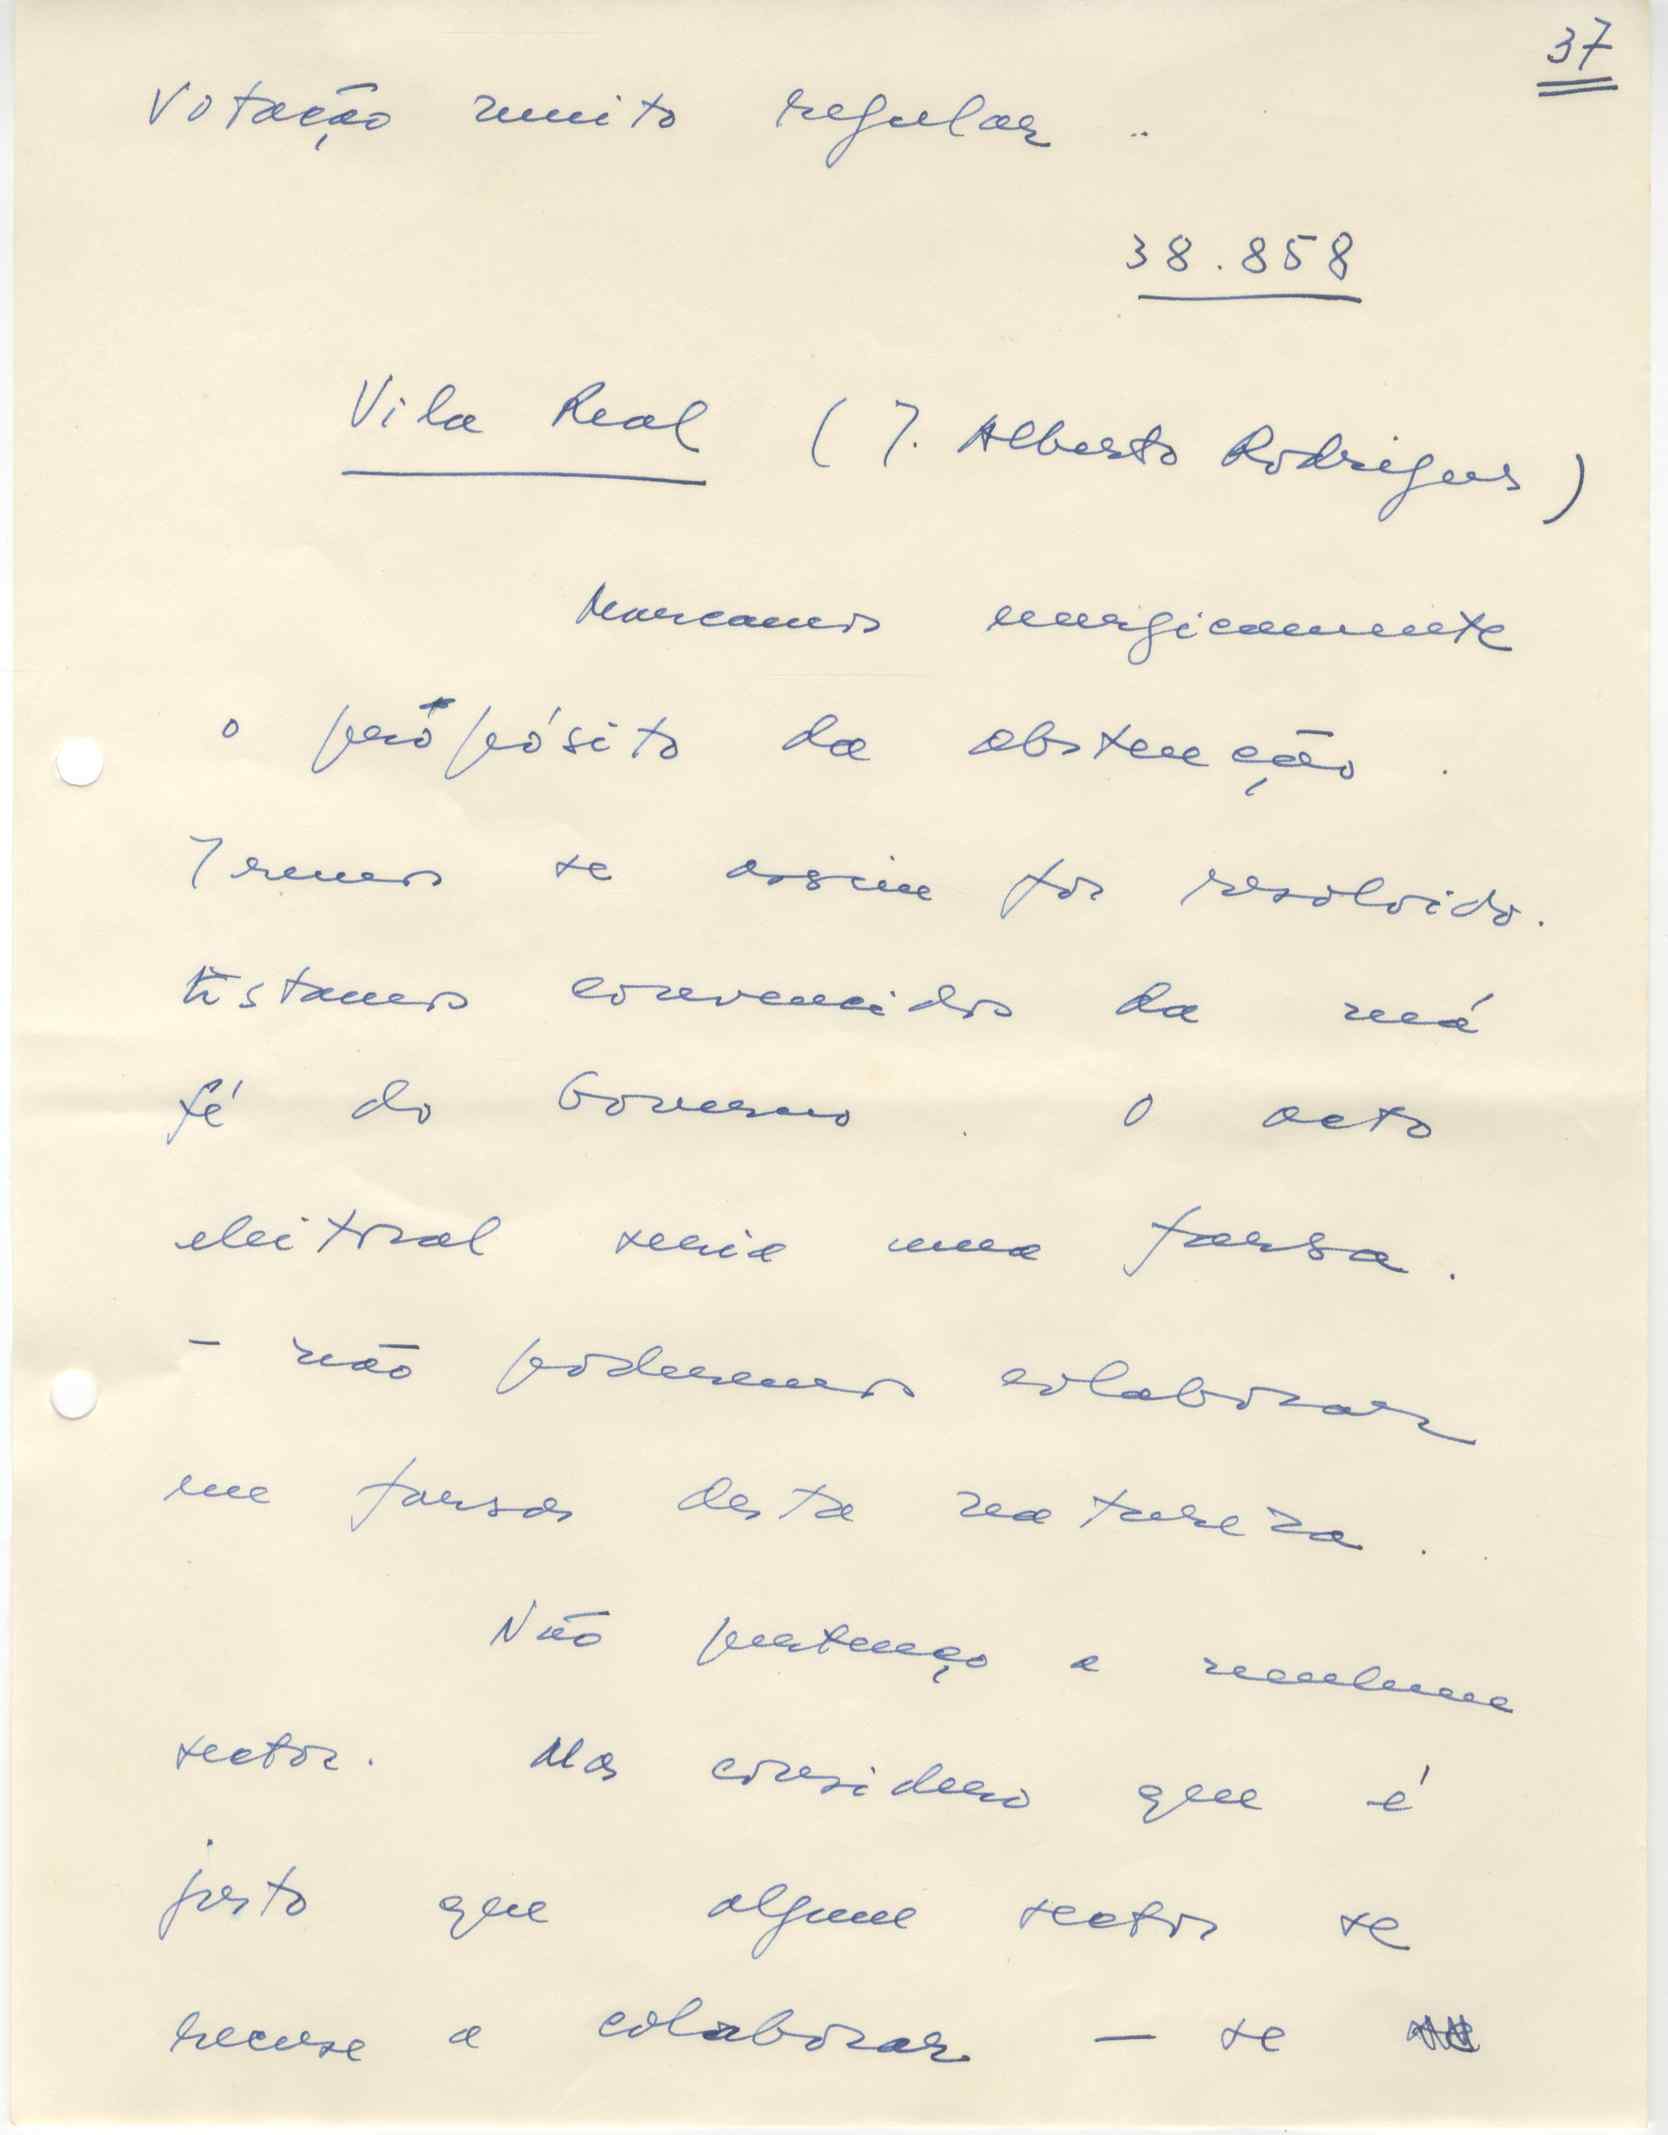 37
Votação muito regular ..
38.858
Vila Real ( J. Alberto Rodrigues )
Marcamos energicamente
o própósito da abstenção .
Iremos se assim for resolvido.
Estamos convencidos da má
fé do Governo . O acto
eleitoral seria uma farsa .
- não podemos colaborar
em farsas desta natureza .
Não pertenço a nenhum
sector. Mas considero que é
justo que algum sector se
recuse a colaborar — se